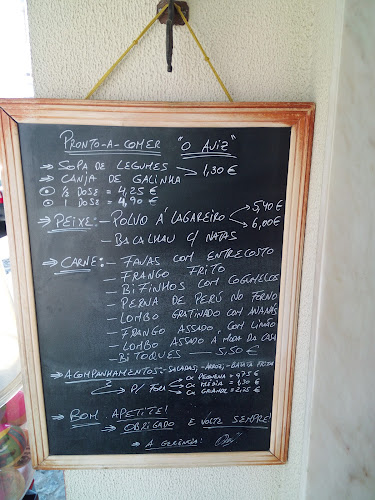 PRONTO-A-COMER "O AVIZ"
→ SOPA DE LEGUMES
→ CANJA DE GALINHA 1,30 €
½ DOSE = 4,25 €
1 DOSE = 4,90 €
→ PEIXE: - POLVO Á LAGAREIRO 5,40 € 6,00 €
- BACALHAU C/ NATAS
→ CARNE: - FAVAS COM ENTRECOSTO
- FRANGO FRITO
- BIFINHOS COM COGUMELOS
- PERNA DE PERÚ NO FORNO
- LOMBO GRATINADO COM ANANÁS
- FRANGO ASSADO, COM LIMÃO
- LOMBO ASSADO A MODA DA CASA
- BITOQUES - 5,50 €
→ ACOMPANHAMENTOS: - SALADAS, - ARROZ, - BATATA FRITA
→ P/ FORA CX PEQUENA = 0,75 €
CX MÉDIA = 1,30 €
CX GRANDE = 2,25 €
→ BOM APETITE!
→ OBRIGADO E VOLTE SEMPRE!
→ A GERÊNCIA: